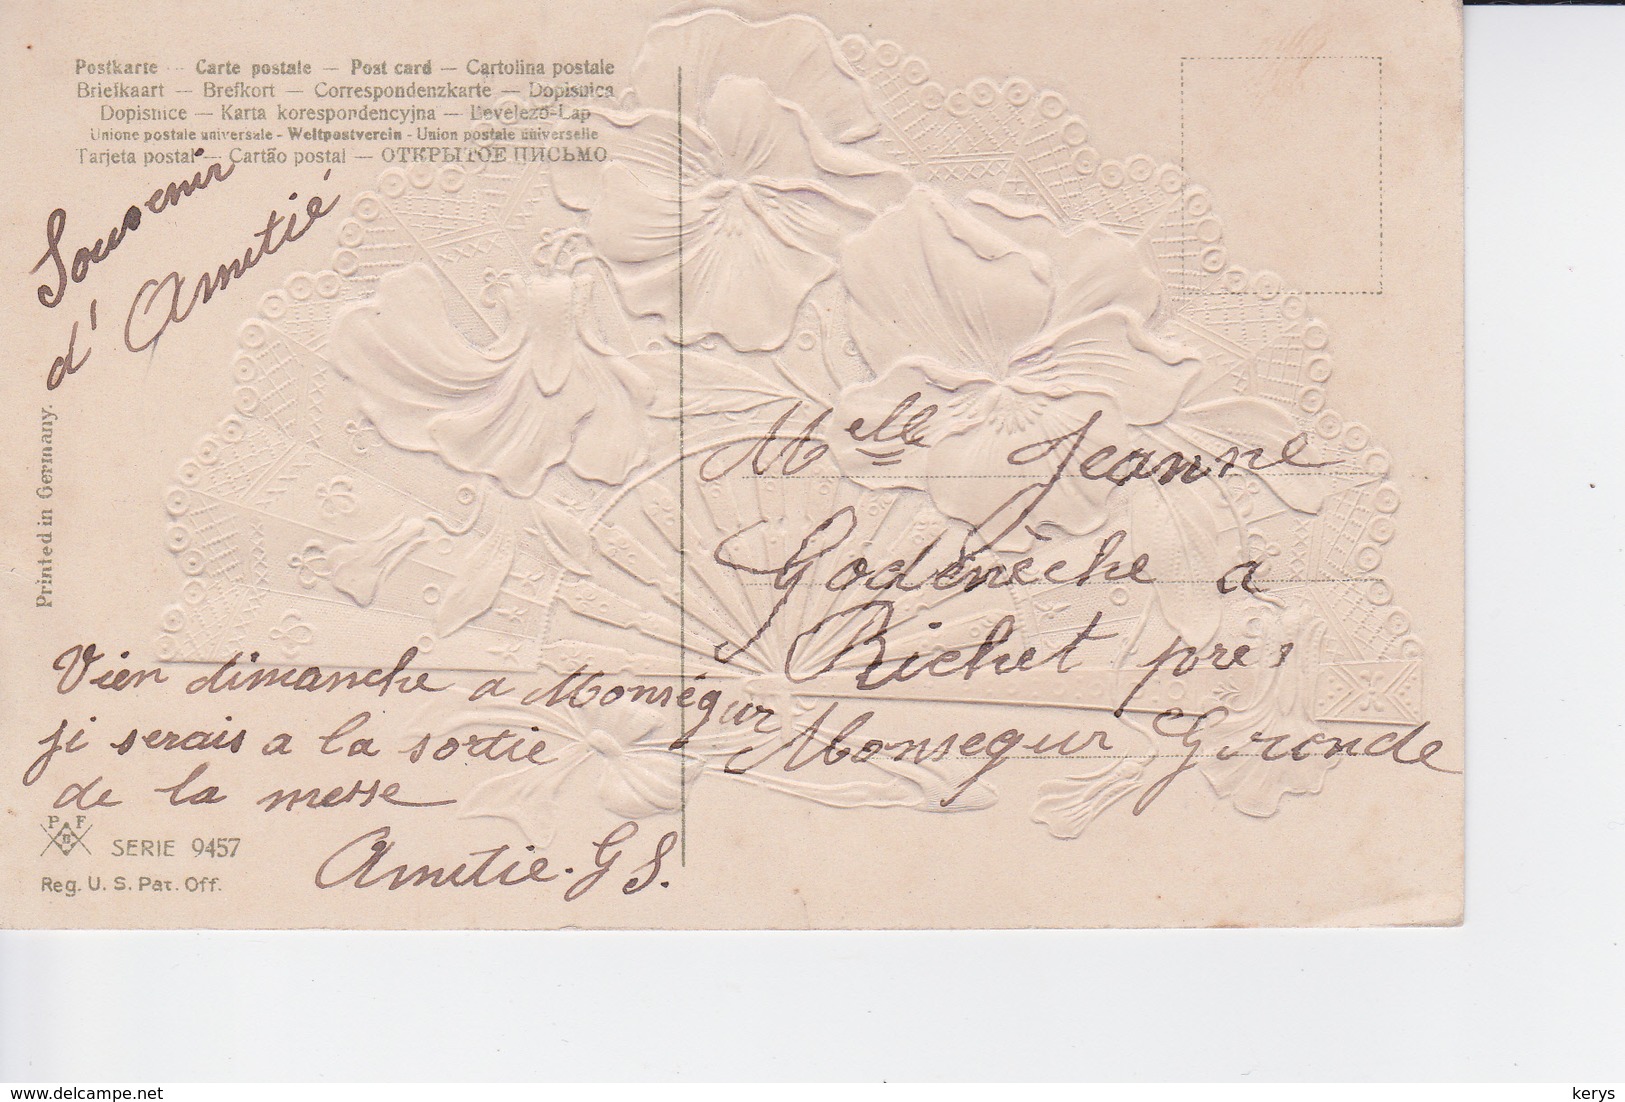 Postkarte — Carte postale — Post card — Cartolina postale
Briefkaart — Brefkort — Correspondenzkarte — Dopisnica
Dopisnice — Karta korespondencyjna — Levelező-Lap
Unione postale universale - Weltpostverein - Union postale universelle
Tarjeta postal — Cartão postal — ОТКРЫТОЕ ПИСЬМО.
Souvenir
d' Amitié
Printed in Germany.
Vien dimanche a Monségur
ji serais a la sortie
de la messe
Amitie. G S.
P F
B
SERIE 9457
Reg. U. S. Pat. Off.
Melle Jeanne
Godenèche a
Richet pres
Monsegur Gironde
www.delcampe.net
kerys